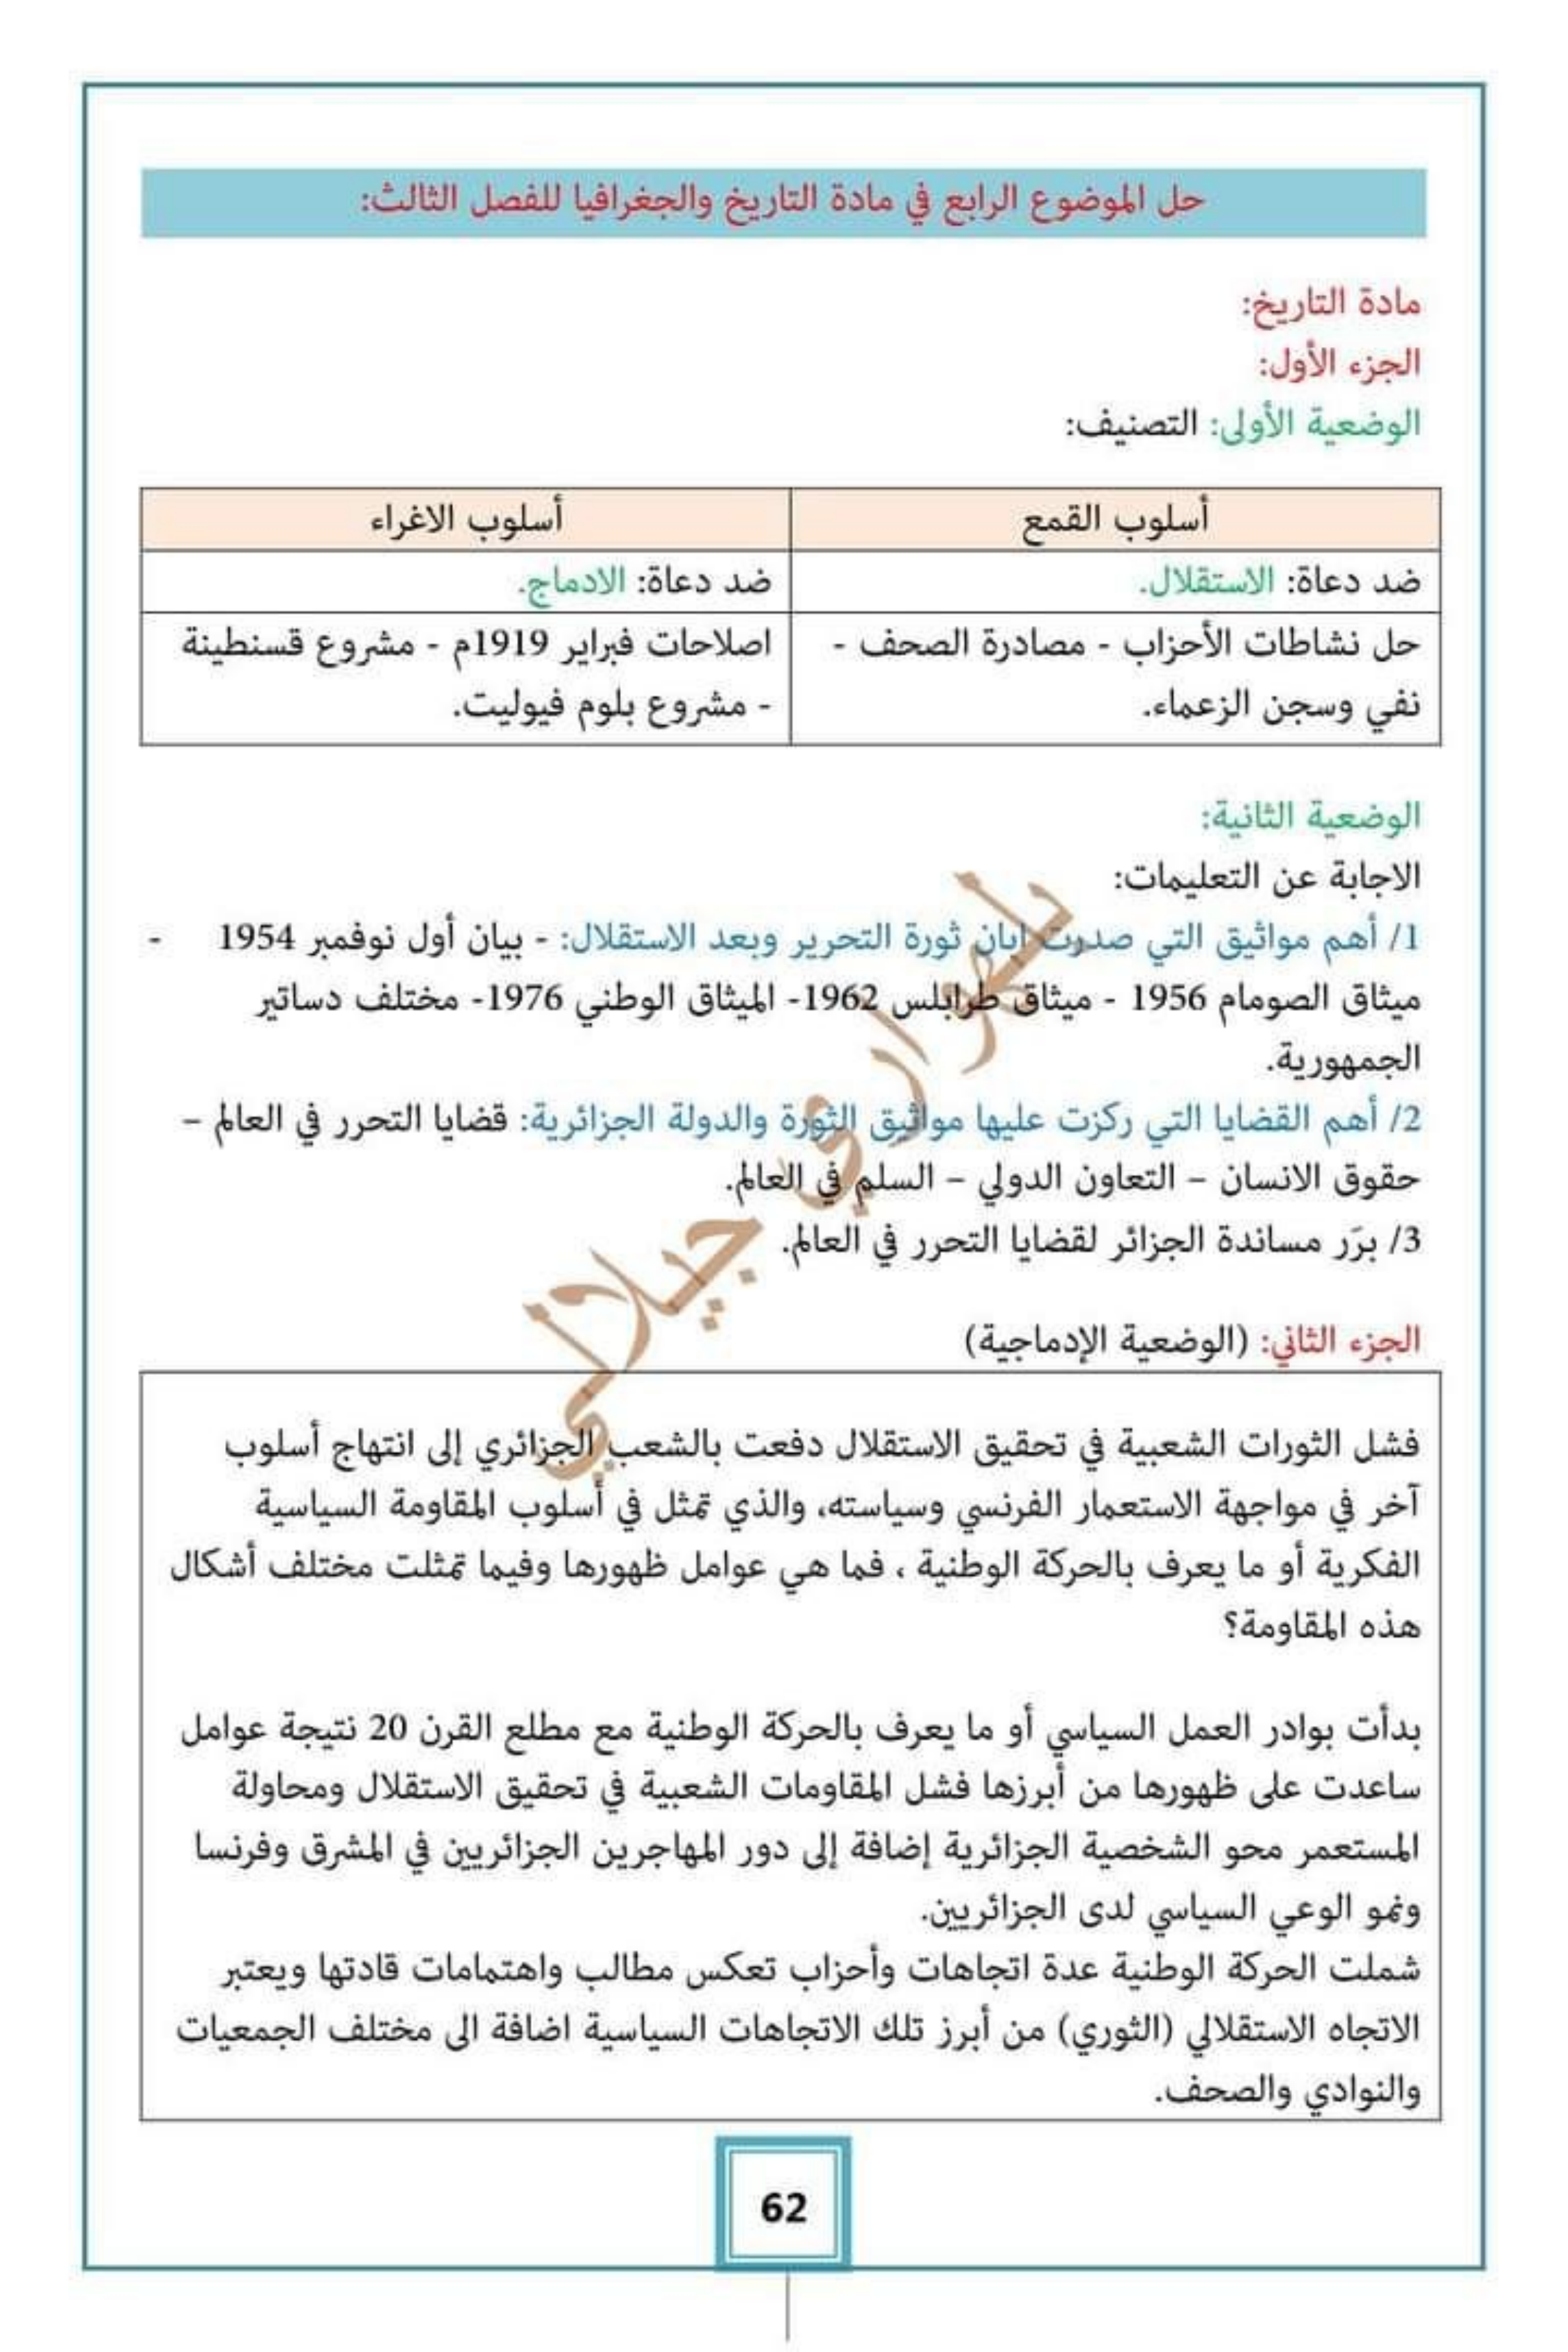 حل الموضوع الرابع في مادة التاريخ والجغرافيا للفصل الثالث:
مادة التاريخ:
الجزء الأول:
الوضعية الأولى: التصنيف:
أسلوب القمع
أسلوب الاغراء
ضد دعاة: الاستقلال.
ضد دعاة: الادماج.
حل نشاطات الأحزاب - مصادرة الصحف -
نفي وسجن الزعماء.
اصلاحات فبراير 1919م - مشروع قسنطينة
- مشروع بلوم فيوليت.
الوضعية الثانية:
الاجابة عن التعليمات:
1/ أهم مواثيق التي صدرت ابان ثورة التحرير وبعد الاستقلال: - بيان أول نوفمبر 1954 -
ميثاق الصومام 1956 - ميثاق طرابلس 1962- الميثاق الوطني 1976- مختلف دساتير
الجمهورية.
2/ أهم القضايا التي ركزت عليها مواثيق الثورة والدولة الجزائرية: قضايا التحرر في العالم –
حقوق الانسان – التعاون الدولي – السلم في العالم.
3/ برّر مساندة الجزائر لقضايا التحرر في العالم.
بلهواري جيلالي
الجزء الثاني: (الوضعية الإدماجية)
فشل الثورات الشعبية في تحقيق الاستقلال دفعت بالشعب الجزائري إلى انتهاج أسلوب
آخر في مواجهة الاستعمار الفرنسي وسياسته، والذي تمثل في أسلوب المقاومة السياسية
الفكرية أو ما يعرف بالحركة الوطنية ، فما هي عوامل ظهورها وفيما تمثلت مختلف أشكال
هذه المقاومة؟
بدأت بوادر العمل السياسي أو ما يعرف بالحركة الوطنية مع مطلع القرن 20 نتيجة عوامل
ساعدت على ظهورها من أبرزها فشل المقاومات الشعبية في تحقيق الاستقلال ومحاولة
المستعمر محو الشخصية الجزائرية إضافة إلى دور المهاجرين الجزائريين في المشرق وفرنسا
ونمو الوعي السياسي لدى الجزائريين.
شملت الحركة الوطنية عدة اتجاهات وأحزاب تعكس مطالب واهتمامات قادتها ويعتبر
الاتجاه الاستقلالي (الثوري) من أبرز تلك الاتجاهات السياسية اضافة الى مختلف الجمعيات
والنوادي والصحف.
62